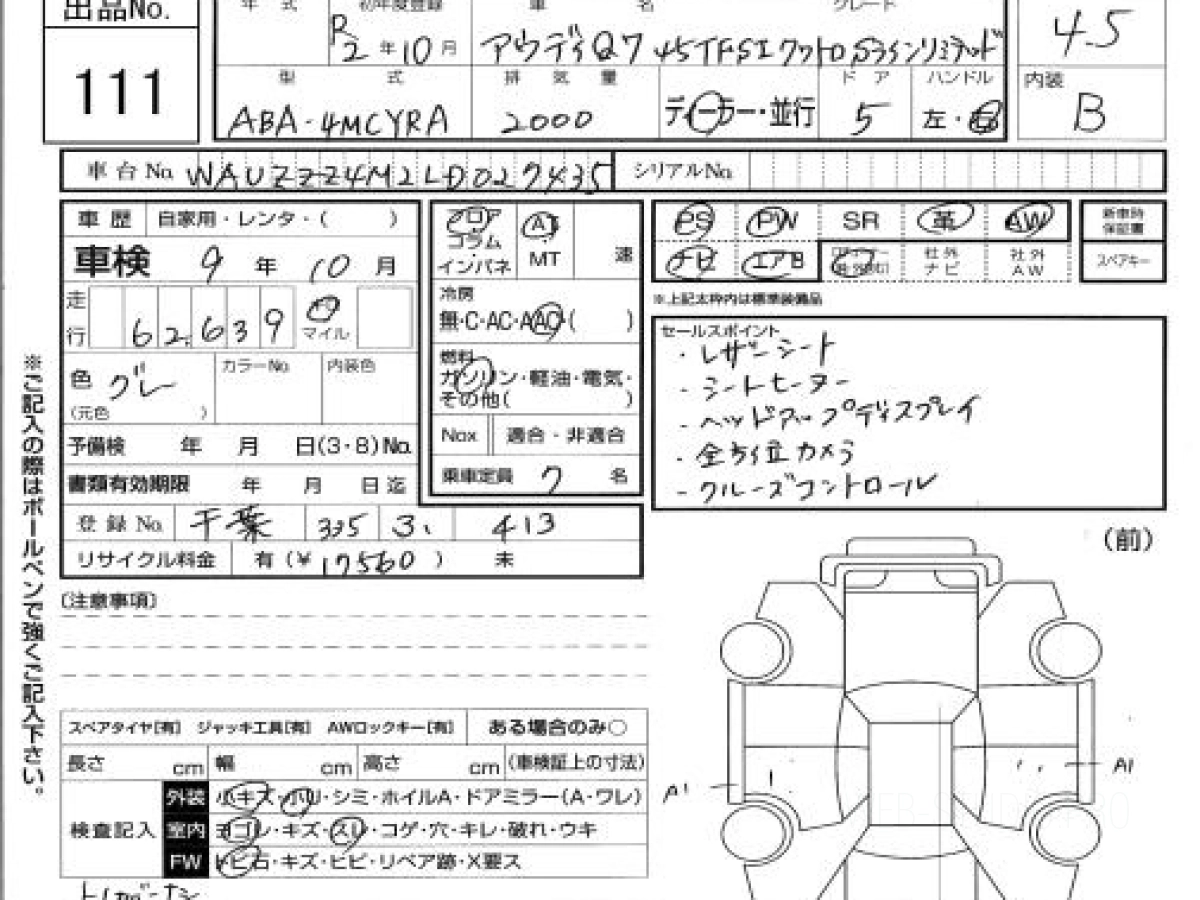 出品No. 年式 初年度登録 車名 グレード 4.5
111 R2年10月 アウディQ7 45TFSIクワトロSラインリミテッド
型式 排気量 ドア ハンドル 内装
ABA-4MCYRA 2000 ディーラー・並行 5 左・右 B
車台No. WAUZZZ4M2LD027435 シリアルNo.
車歴 自家用・レンタ・( )
車検 9年10月
走行 62,639 マイル
色 グレー カラーNo. 内装色
(元色 )
予備検 年 月 日(3・8)No.
書類有効期限 年 月 日迄
登録No. 千葉 335 413
リサイクル料金 有(¥17560) 未
フロア AT 速
コラム
インパネ MT
冷房
無・C・AC・AAC・( )
燃料
ガソリン・軽油・電気・
その他( )
Nox 適合・非適合
乗車定員 7 名
PS PW SR 革 AW 新車時保証書
ナビ エアB 社外ナビ 社外AW スペアキー
※上記太枠内は標準装備品
セールスポイント
・レザーシート
・シートヒーター
・ヘッドアップディスプレイ
・全方位カメラ
・クルーズコントロール
※ご記入の際はボールペンで強くご記入下さい。
〔注意事項〕
(前)
スペアタイヤ[有] ジャッキ工具[有] AWロックキー[有] ある場合のみ○
長さ cm 幅 cm 高さ cm (車検証上の寸法)
検査記入
外装 小キズ・小凹・シミ・ホイルA・ドアミラー(A・ワレ)
室内 ヨゴレ・キズ・スレ・コゲ・穴・キレ・破れ・ウキ
FW トビ石・キズ・ヒビ・リペア跡・X要ス
A1
A1